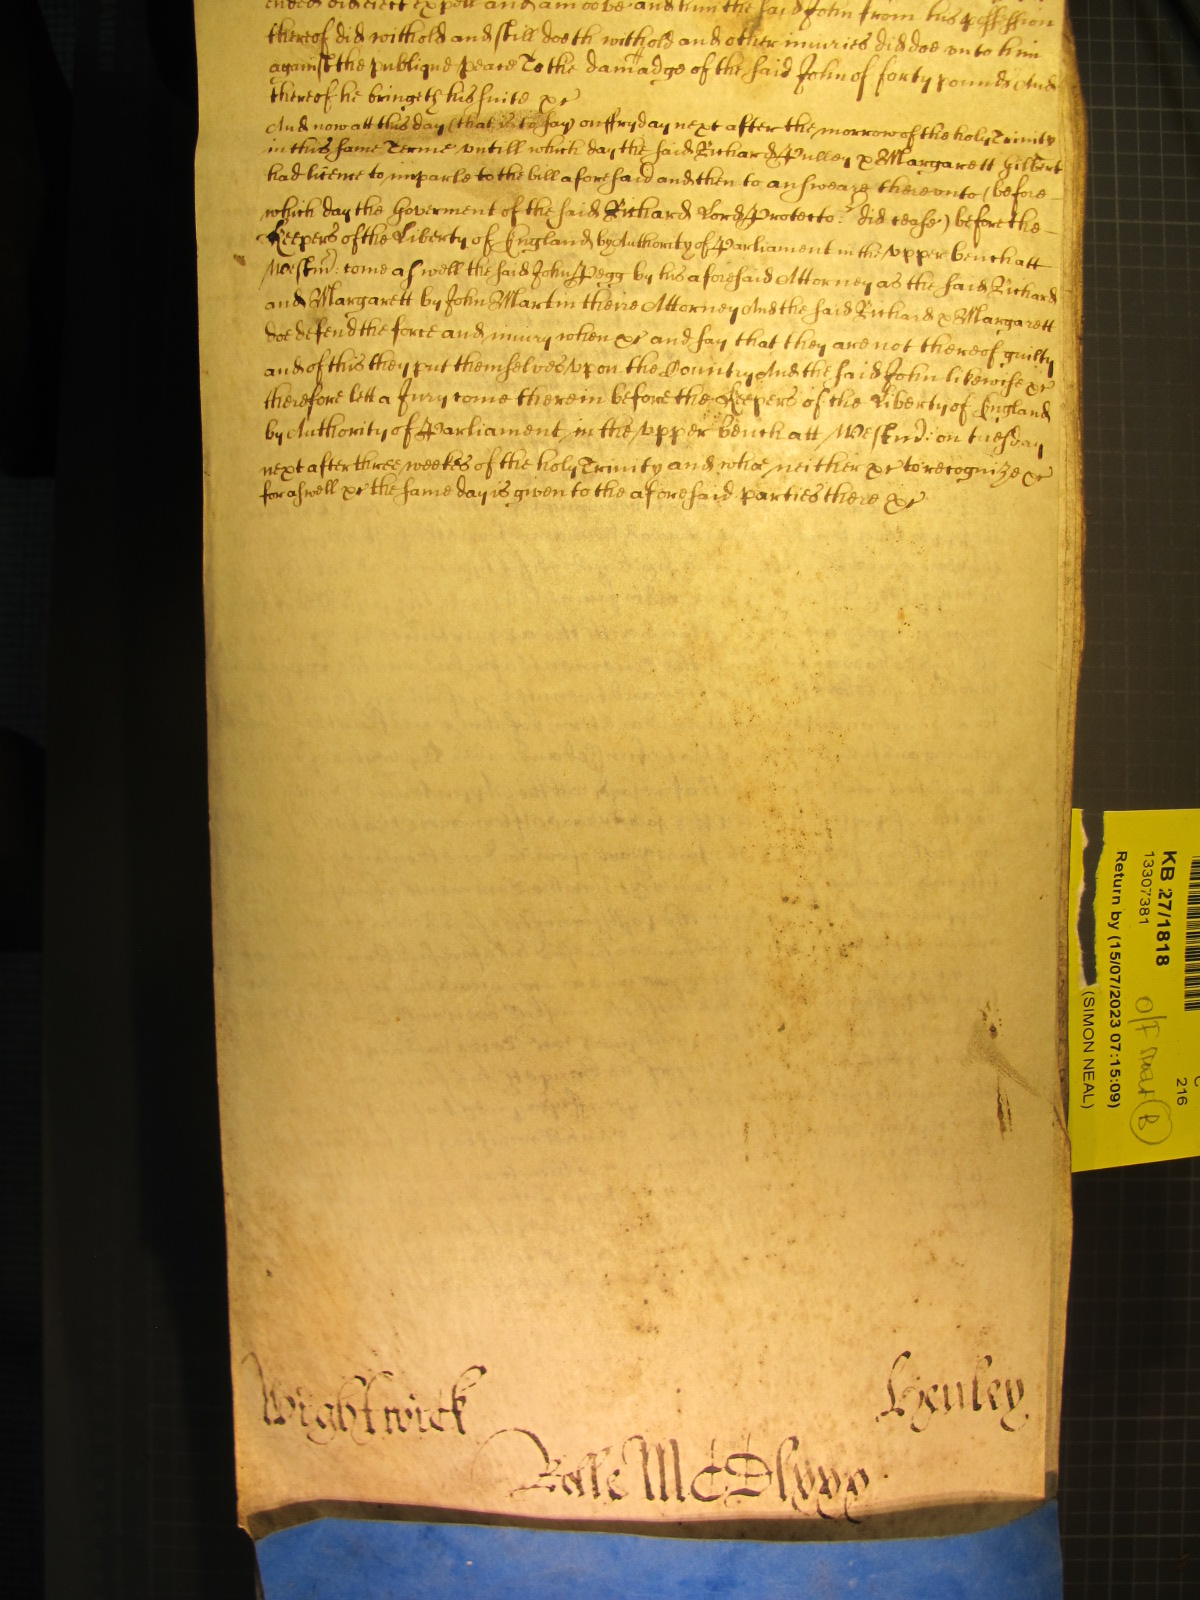 ended did eject expell and amoove and him the said John from his possession
thereof did withold and still doeth withold and other injuries did doe vnto him
against the publique peace To the dam̄adge of the said John of forty pounds And
thereof he bringeth his suite &c
And now att this day (that is to say) on ffryday next after the morrow of the holy Trinity
in this same Terme vntill which day the said Richard Pulley & Margarett Gilbert
had licence to imparle to the bill aforesaid and then to answeare therevnto (before
which day the Goverment of the said Richard Lord Protector did cease) before the
Keepers of the Liberty of England by Authority of Parliament in the vpper bench att
Westm̄: come aswell the said John Pegg by his aforesaid Attorney as the said Richard
and Margarett by John Martin theire Attorney And the said Richard & Margarett
doe defend the force and injury when &c and say that they are not thereof guilty
and of this they put themselves vpon the Country And the said John likewise &c
therefore lett a Jury come therein before the Keepers of the Liberty of England
by Authority of Parliament in the vpper bench att Westm̄: on tuesday
next after three weekes of the holy Trinity and who neither &c to recognize &c
for aswell &c the same day is given to the aforesaid parties there &c
Wightwick
Henley
Rolle MCDlxxx
KB 27/1818
13307381
Return by (15/07/2023 07:15:09)
(SIMON NEAL)
216
O/F
B